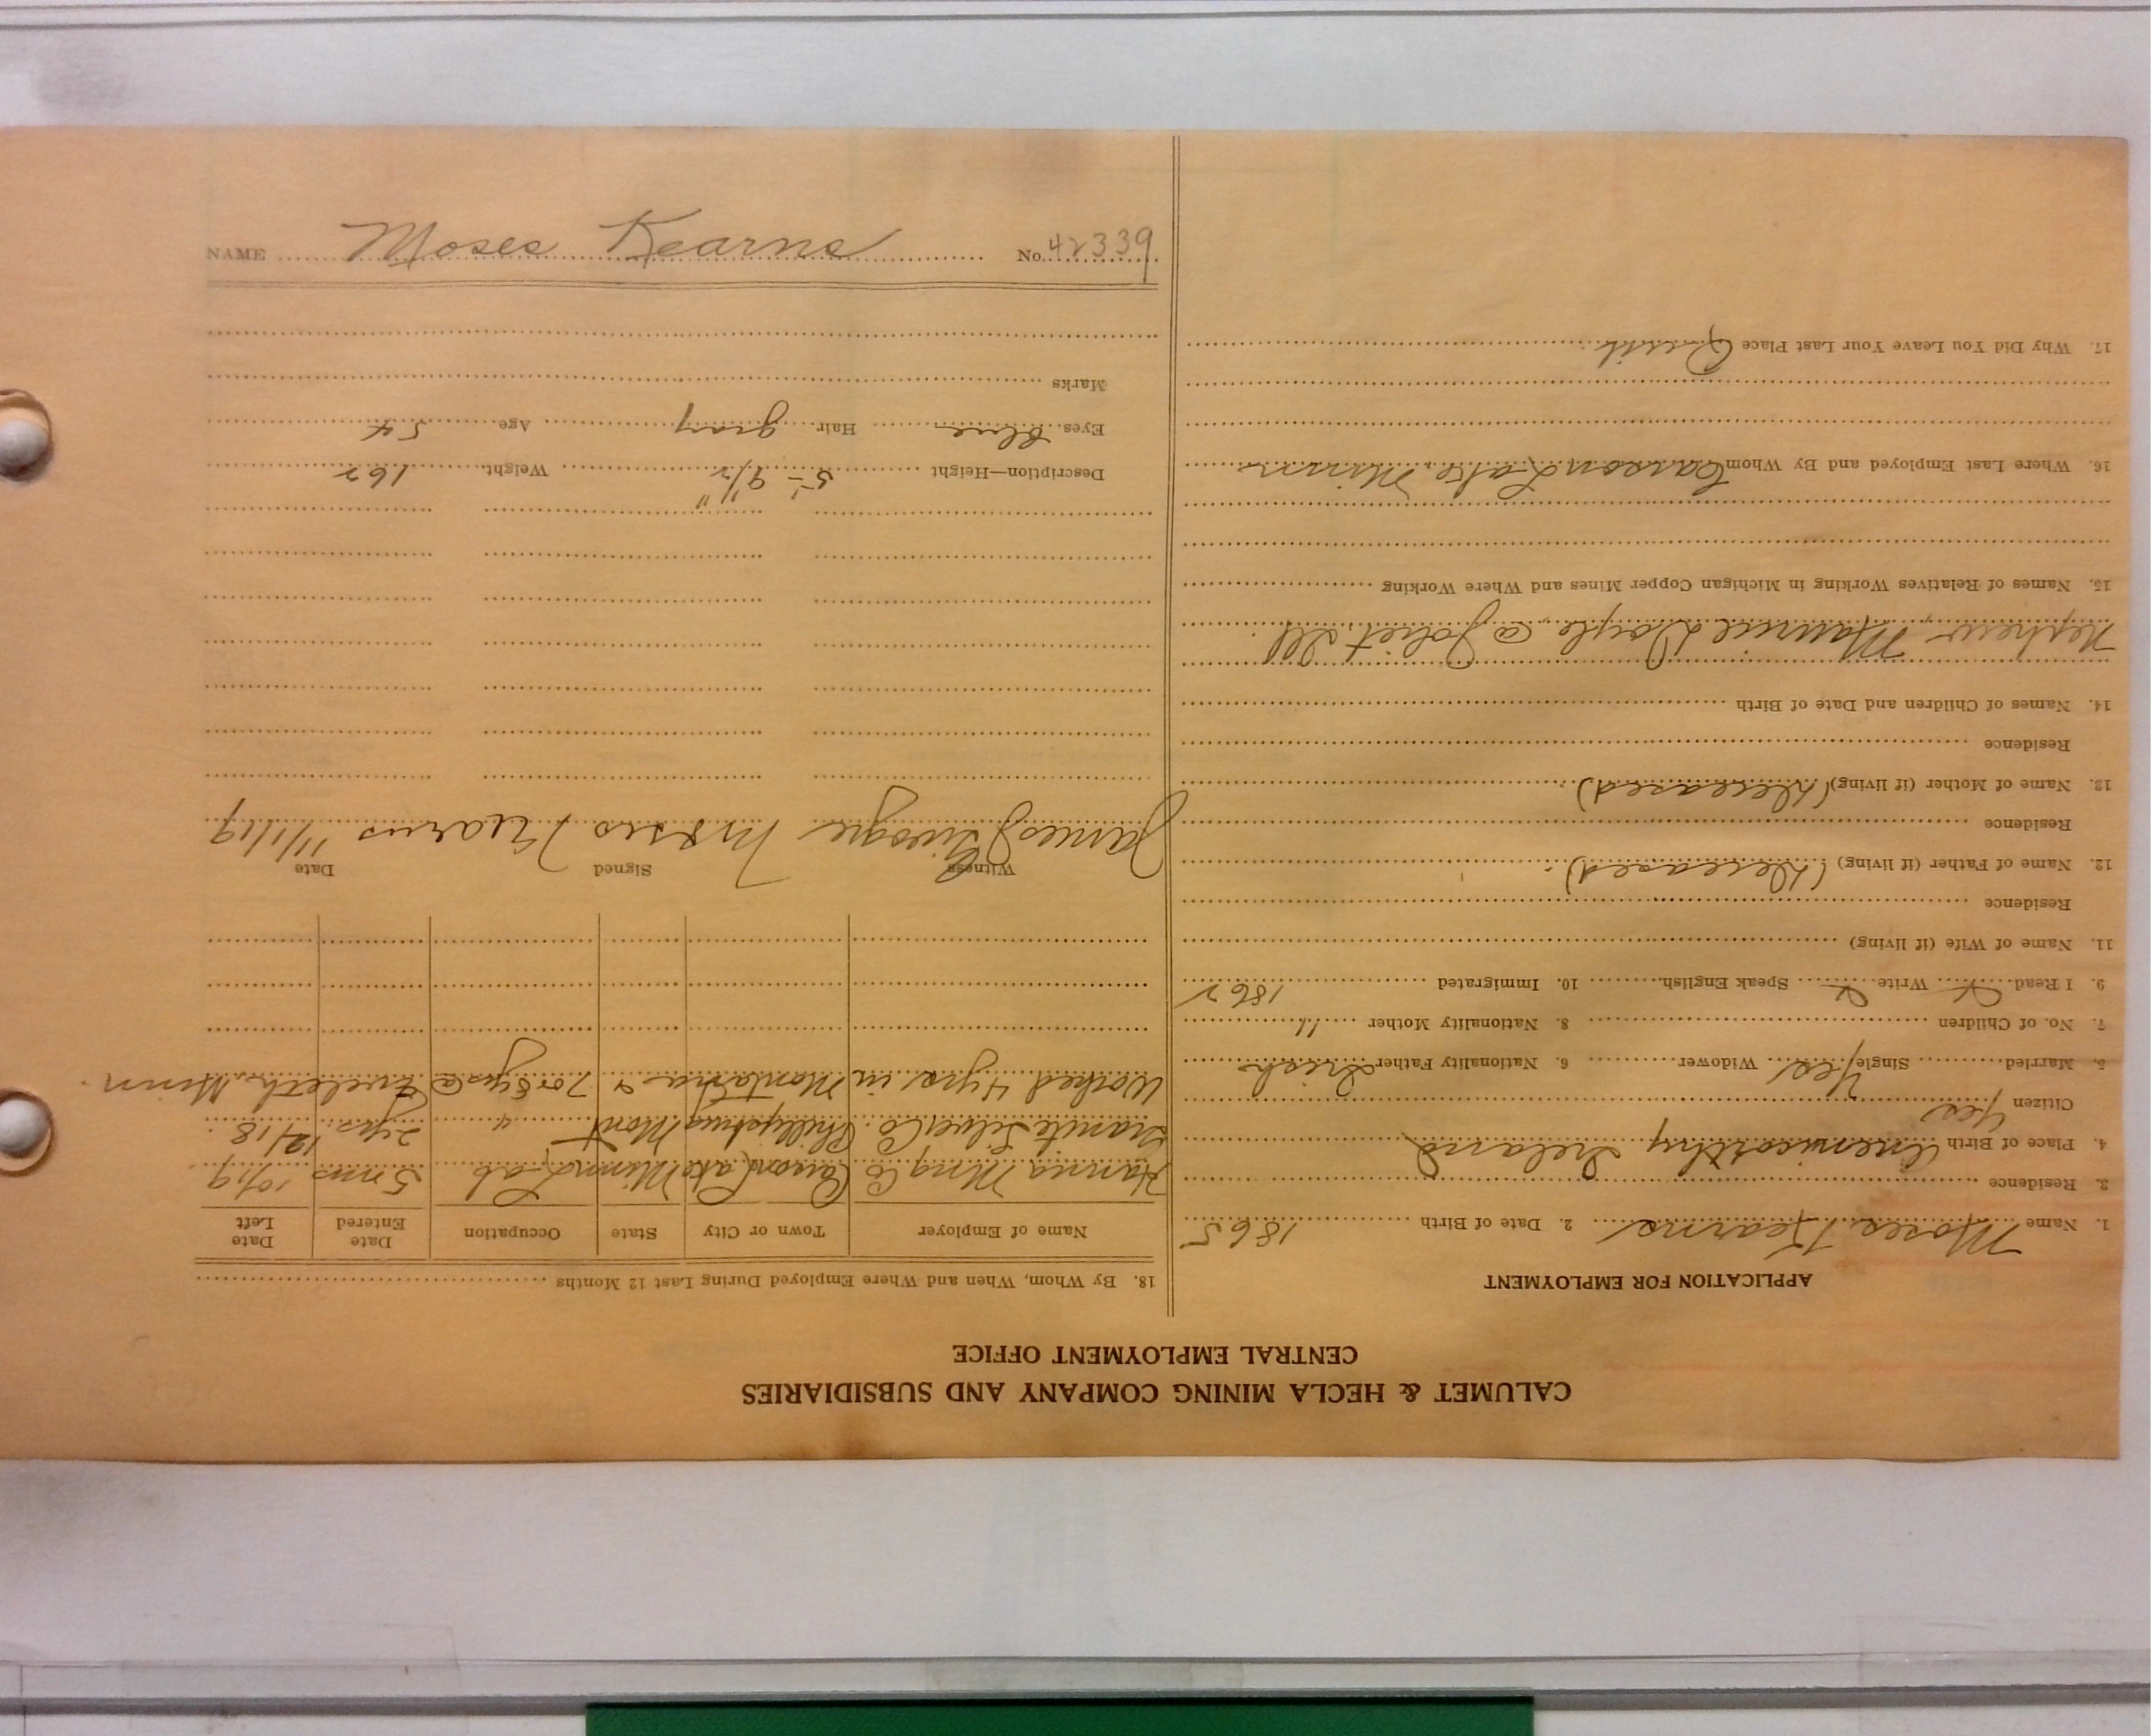 CALUMET & HECLA MINING COMPANY AND SUBSIDIARIES
CENTRAL EMPLOYMENT OFFICE
APPLICATION FOR EMPLOYMENT
1. Name Moses Kearns 2. Date of Birth 1865
3. Residence
4. Place of Birth Ireland
Citizen Yes
5. Married Single Yes Widower 6. Nationality Father Irish
7. No. of Children 8. Nationality Mother "
9. I Read Write Speak English 10. Immigrated 1862
11. Name of Wife (if living)
Residence
12. Name of Father (if living) (Deceased)
Residence
13. Name of Mother (if living) (Deceased)
Residence
14. Names of Children and Date of Birth
Nephew Maurice Doyle @ Joliet Ill
15. Names of Relatives Working in Michigan Copper Mines and Where Working
16. Where Last Employed and By Whom Carson Lake, Minn
17. Why Did You Leave Your Last Place Quit
18. By Whom, When and Where Employed During Last 12 Months
Name of Employer Town or City State Occupation Date Entered Date Left
Hanna Mng Co Carson Lake Minn Lab 5 mos 10/19
Granite Silver Co. Phillipsburg Mont " 2 yrs 12/18
Worked 4 yrs in Montana & 7 or 8 yrs @ Eveleth, Minn
Witness Signed Date
James Moses Kearns 11/1/19
Description—Height 5'-9 1/2" Weight 162
Eyes blue Hair gray Age 54
Marks
NAME Moses Kearns No. 42339